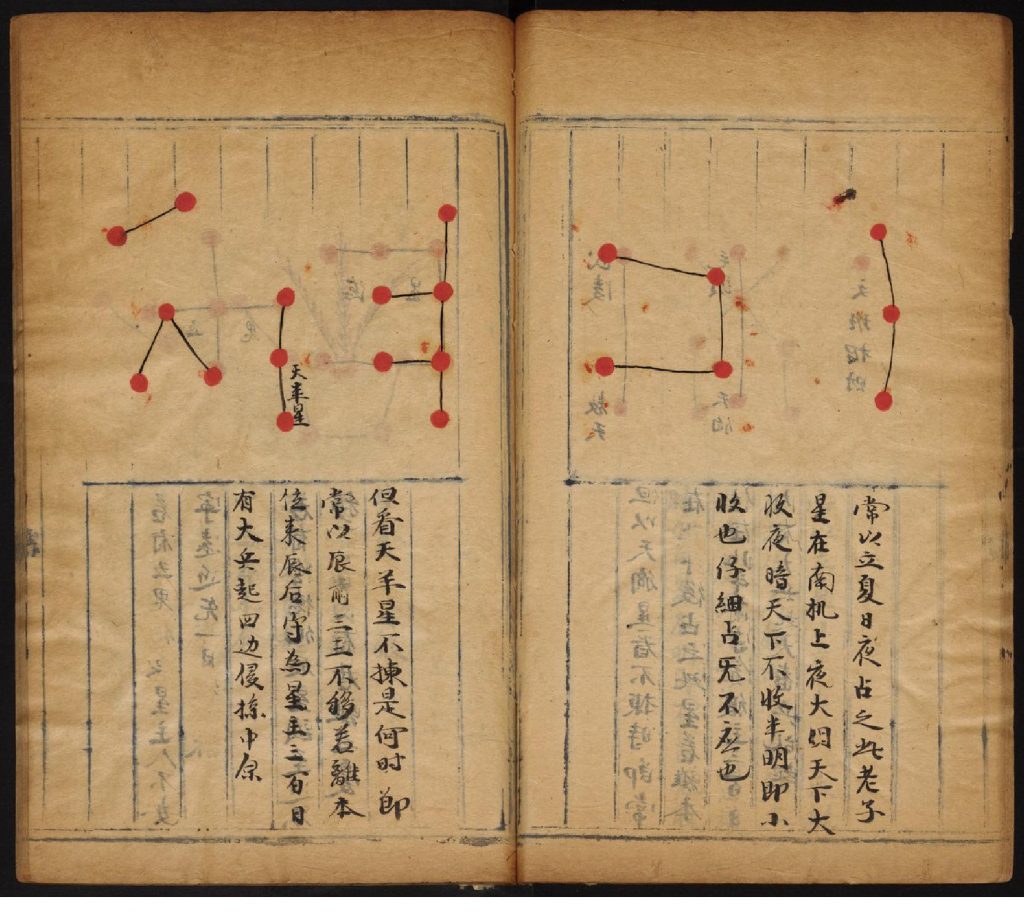 常以立夏日夜占之此老子
星在南机上夜大明天下大
收夜暗天下不收半明即小
收也仔細占无不应也
天羊星
但看天羊星不揀是何时節
常以辰前三三不移若離本
位来辰后守為星主三百日
有大兵起四边侵掠中原